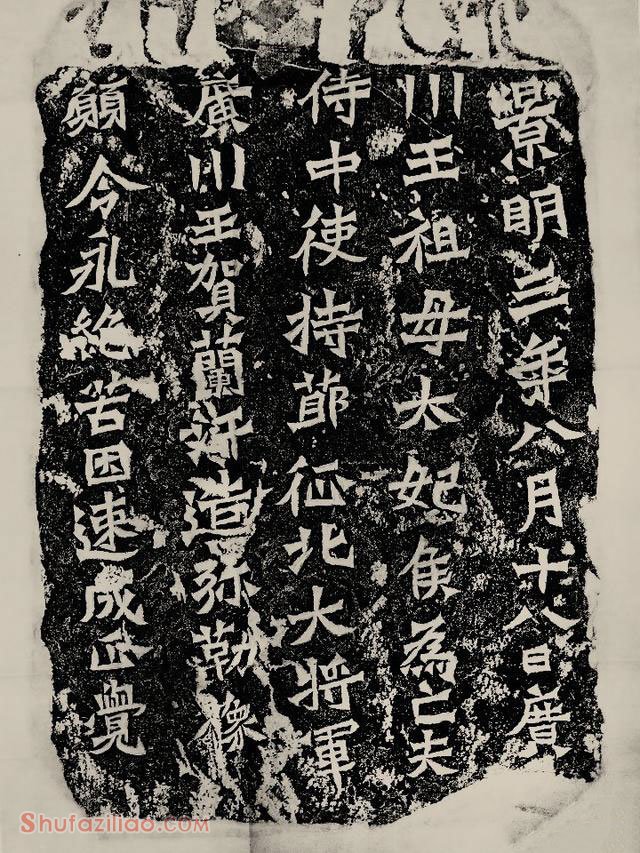 景明三年八月十八日廣
川王祖母太妃矦為亡夫
侍中使持節征北大將軍
廣川王賀蘭汗造弥勒像
願令永絶苦困速成正覺
Shufaziliao.COM